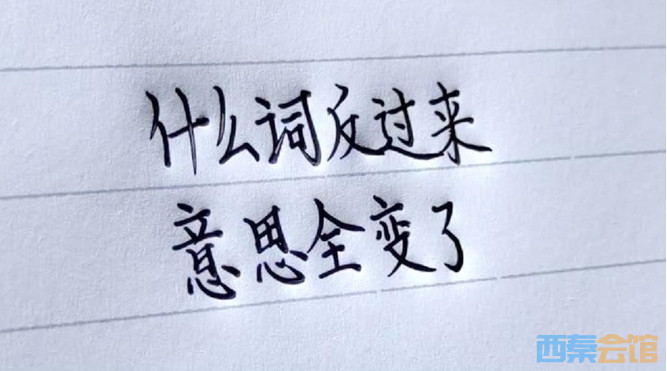 什么词反过来
意思全变了
西秦会馆